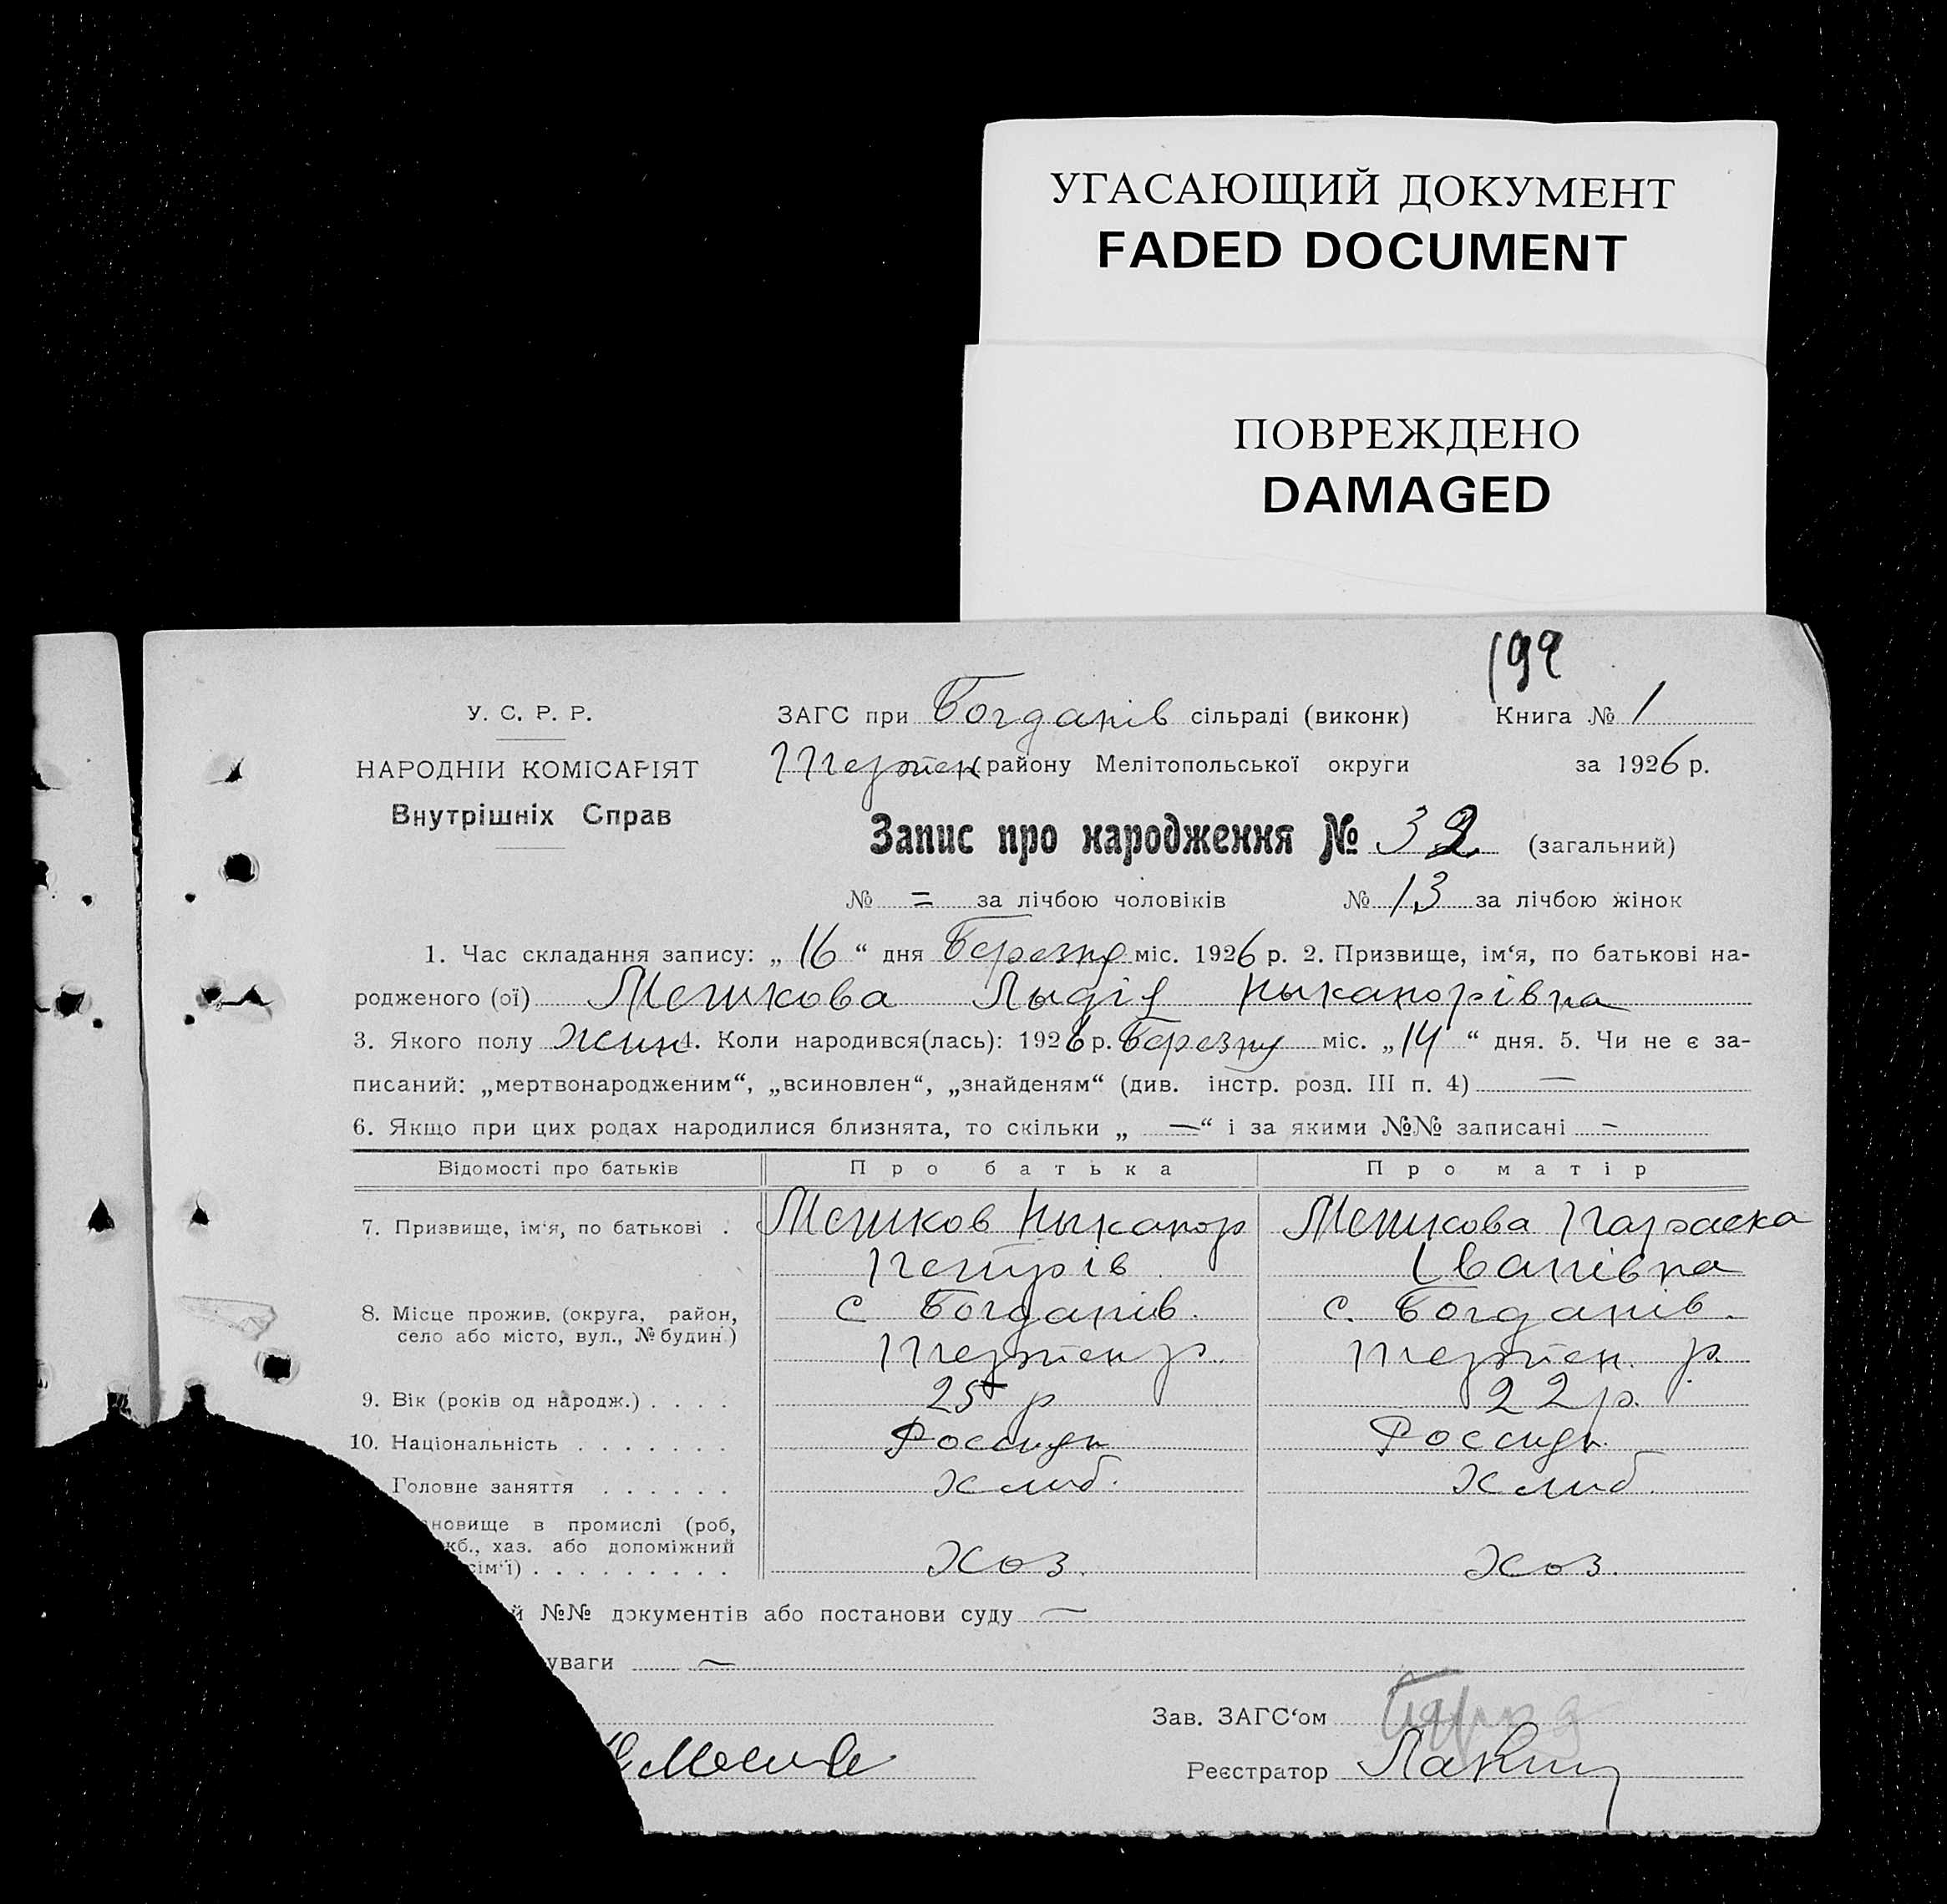 УГАСАЮЩИЙ ДОКУМЕНТ
FADED DOCUMENT
ПОВРЕЖДЕНО
DAMAGED
199
У. С. Р. Р.
ЗАГС при Богданів сільраді (виконк) Книга № 1
НАРОДНІЙ КОМІСАРІЯТ
Терпен району Мелітопольської округи за 1926 р.
Внутрішніх Справ
Запис про народження № 32 (загальний)
№ = за лічбою чоловіків № 13 за лічбою жінок
1. Час складання запису: „ 16 “ дня Березня міс. 1926 р. 2. Призвище, ім‘я, по батькові на-
родженого (ої) Мешкова Лыдія Ныканорівна
3. Якого полу жин 4. Коли народився(лась): 1926 р. Березня міс. „14 “ дня. 5. Чи не є за-
писаний: „мертвонародженим“, „всиновлен“, „знайденям“ (див. інстр. розд. III п. 4) —
6. Якщо при цих родах народилися близнята, то скільки „ —“ і за якими №№ записані -
Відомості про батьків Про батька Про матір
7. Призвище, ім‘я, по батькові . Мешков Ныканор Мешкова Параска
Петрів Іванівна
8. Місце прожив. (округа, район, с Богданів. с. Богданів.
село або місто, вул., № будин.) Терпен р. Терпен. р.
9. Вік (років од народж.) . . . . 25 р 22 р.
10. Національність . . . . . . . Россиян Россиян
Головне заняття . . . . . . Хлиб. Хлиб.
новище в промислі (роб,
кб., хаз. або допоміжний
сім‘ї) . . . . . . . . . Хоз. Хоз.
й №№ документів або постанови суду —
уваги —
Зав. ЗАГС‘ом
Реєстратор